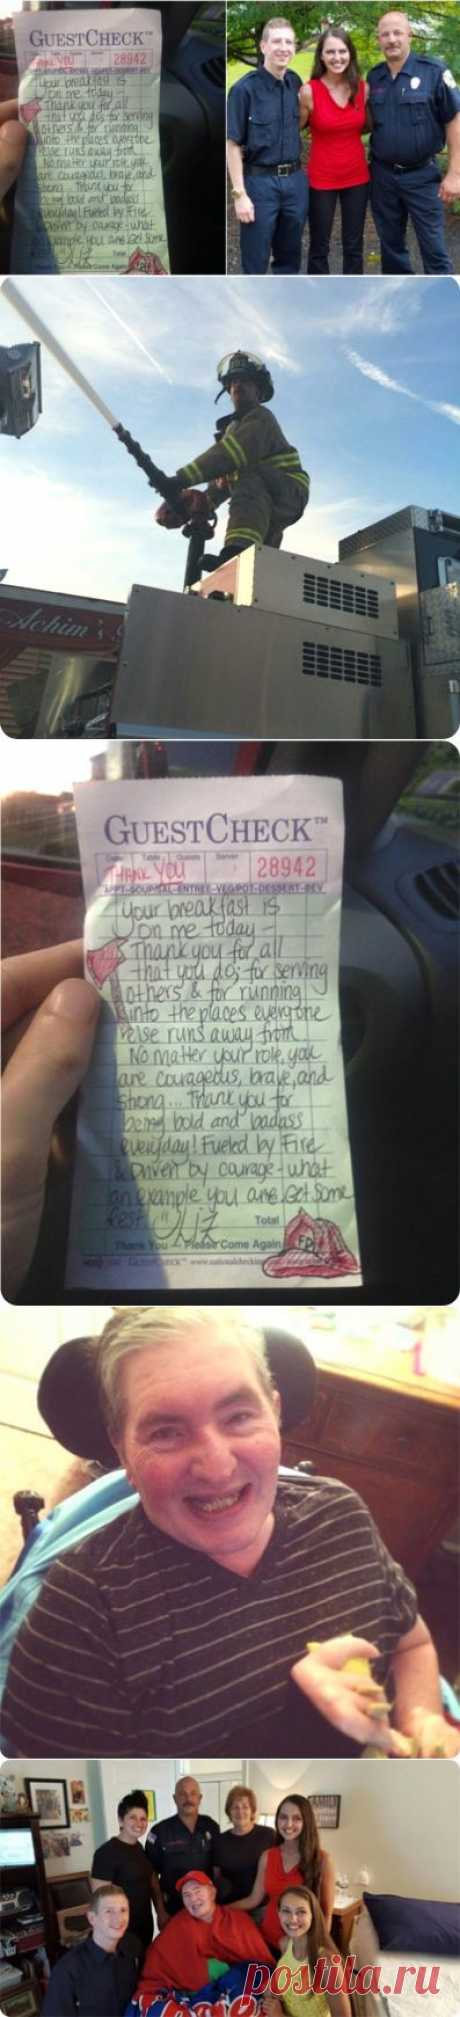 GUESTCHECK™
Thank You 28942
Your breakfast is
on me today -
Thank you for all
that you do; for serving
others & for running
into the places everyone
else runs away from.
No matter your role, you
are courageous, brave, and
strong... Thank you for
being bold and badass
everyday! Fueled by Fire
& Driven by courage - what
an example you are. Get Some
Liz
Total
Please Come Again
Achim's
GUESTCHECK™
Date Table Guests Server
THANK YOU 28942
APPT-SOUP/SAL-ENTREE-VEG/POT-DESSERT-BEV
Your breakfast is
on me today -
Thank you for all
that you do; for serving
others & for running
into the places everyone
else runs away from.
No matter your role, you
are courageous, brave, and
strong... Thank you for
being bold and badass
everyday! Fueled by Fire
& Driven by courage - what
an example you are. Get Some
Rest! Liz
Total
Thank You - Please Come Again
GUESTCHECK™
postila.ru